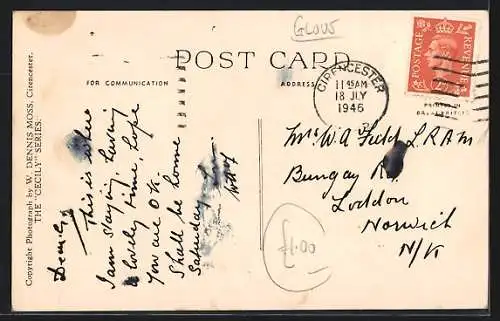 GLOUS
POST CARD
FOR COMMUNICATION
ADDRESS
CIRENCESTER
11 45 AM
18 JLY
1946
POSTAGE
REVENUE
PRINTED IN
Copyright Photograph by W. DENNIS MOSS, Cirencester.
THE "CECILY" SERIES.
This is where
I am staying. Having
a lovely time, hope
you are O.K.
Shall be home
Saturday
W.A. Field L.R.A.M
Bungay Rd.
Loddon
Norwich
N/K
£1.00